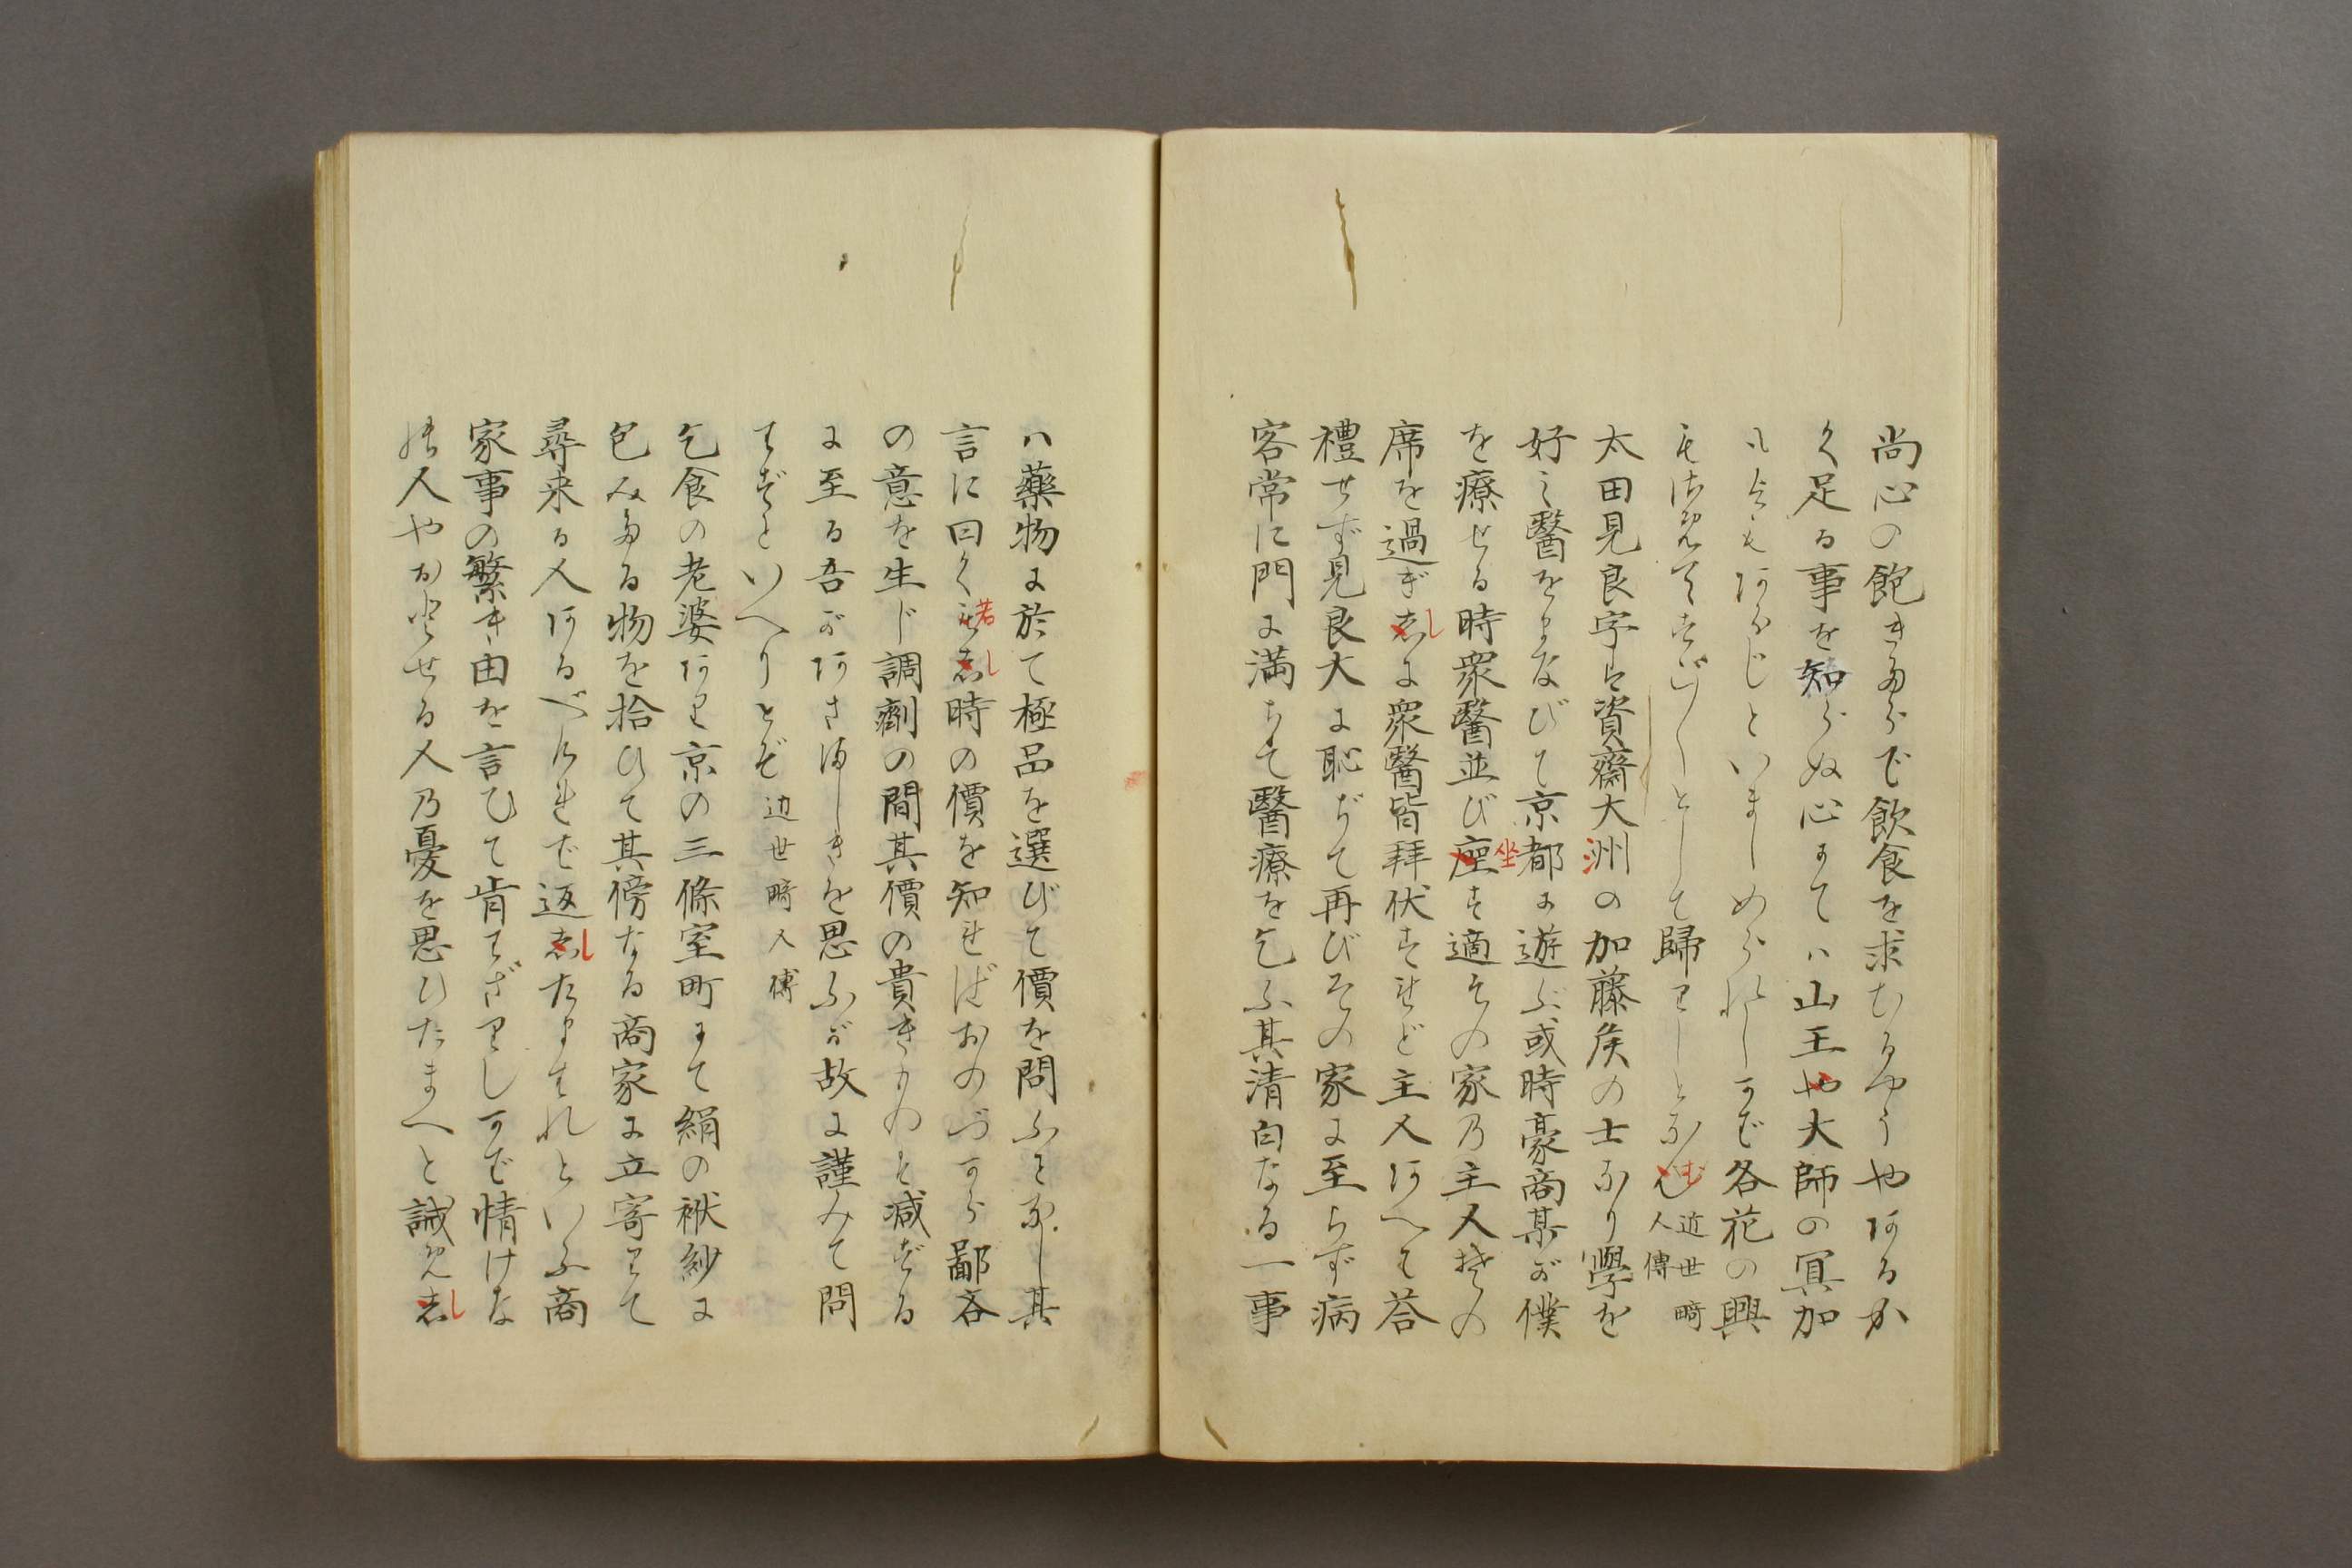 尚心の飽きたらで飲食を求むるやうやあるか
く足る事を知らぬ心にてハ山王や大師の冥加
もいかゞあらじといましめられしかバ各花の興
もさめてすご〳〵として帰りしとなむ近世畸人傳
太田見良字は資齋大洲の加藤矦の士なり學を
好み醫をまなびて京都に遊ぶ或時豪商某が僕
を療せる時衆醫並び座坐す適その家乃主人その
席を過ぎしに衆醫皆拝伏すれど主人あへて荅
禮せず見良大に恥ぢて再びその家に至らず病
客常に門に満ちて醫療を乞ふ其清白なる一事
ハ藥物に於て極品を選びて價を問ふことなし其
言に曰く若し時の價を知れバおのづから鄙吝
の意を生じ調劑の間其價の貴きものを減ずる
に至る吾があさましきを思ふが故に謹みて問
はずといへりとぞ 近世畸人傳
乞食の老婆あり京の三條室町にて絹の袱紗に
包みたる物を拾ひて其傍なる商家に立寄りて
尋来る人あるべけれバ返したまはれといふ商
家事の繁き由を言ひて肯はざりしかバ情けな
の人やおとせる人乃憂を思ひたまへと誡めし